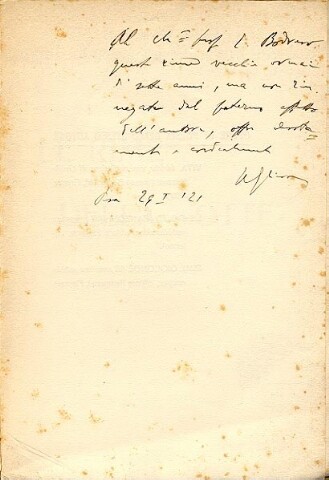 Al ch prof Bodrero
vecchio ormai
di sette anni, ma non rin
negato dal paterno affetto
dell'autore, offre devota=
mente, cordialmente
29 I '21